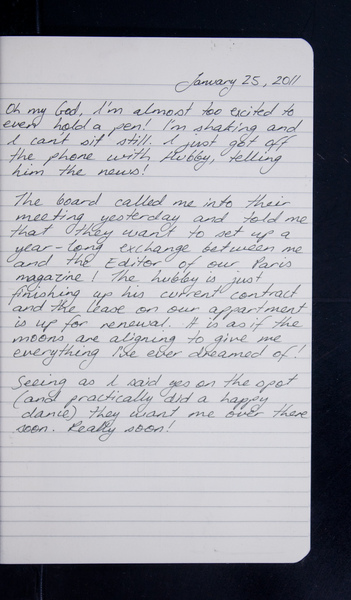 January 25, 2011
Oh my God, I'm almost too excited to
even hold a pen! I'm shaking and
I can't sit still. I just got off
the phone with Hubby, telling
him the news!
The board called me into their
meeting yesterday and told me
that they want to set up a
year-long exchange between me
and the Editor of our Paris
magazine! The hubby is just
finishing up his current contract
and the lease on our appartment
is up for renewal. It is as if the
moons are aligning to give me
everything I've ever dreamed of!
Seeing as I said yes on the spot
(and practically did a happy
dance) they want me over there
soon. Really soon!